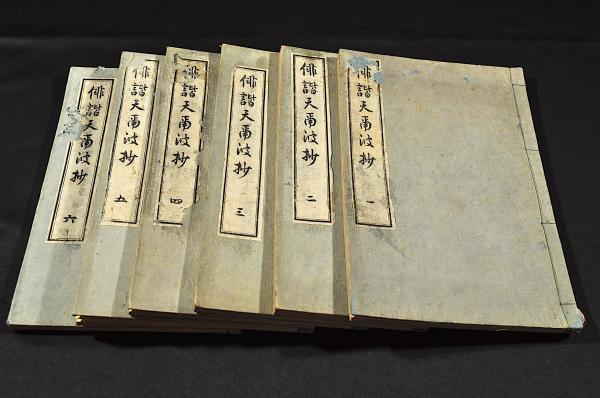 俳諧天爾波抄 一
俳諧天爾波抄 二
俳諧天爾波抄 三
俳諧天爾波抄 四
俳諧天爾波抄 五
俳諧天爾波抄 六